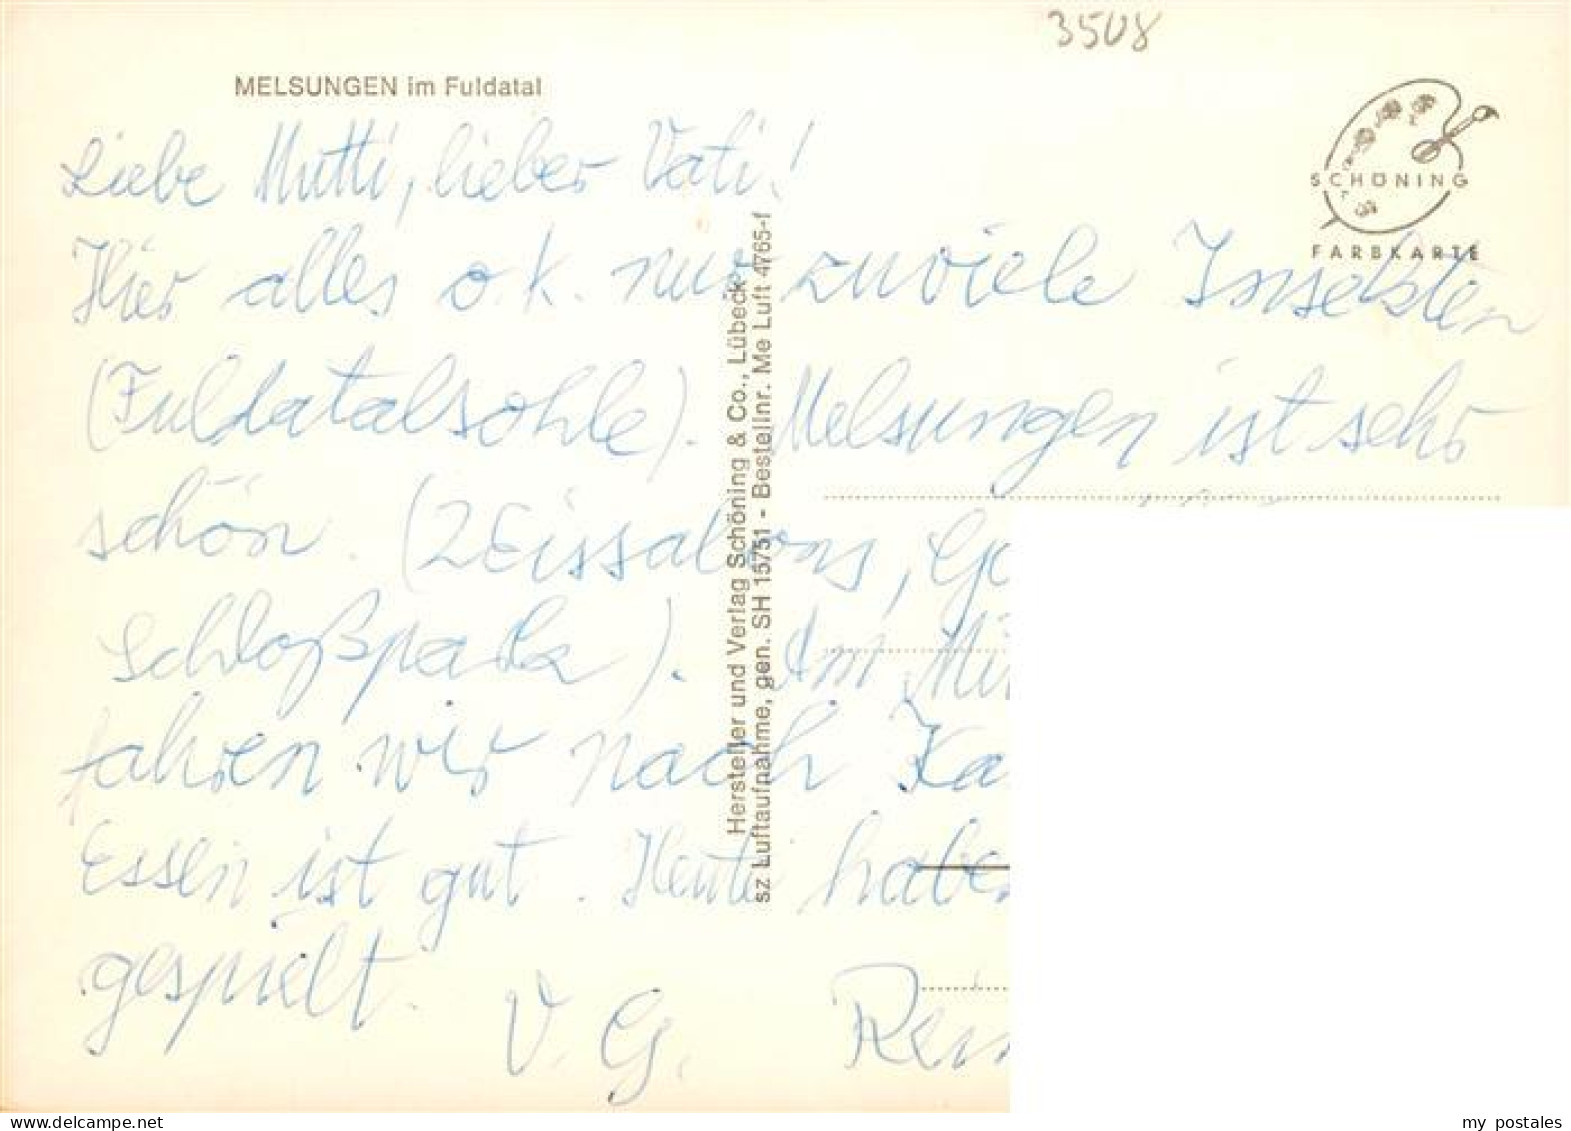 3508
MELSUNGEN im Fuldatal
SCHÖNING
FARBKARTE
Liebe Mutti, lieber Vati!
Hier alles o.k. nur zuviele Insekten
(Fuldatalsohle). Melsungen ist sehr
schön. (2 Eissalons,
Schloßpark). Am
fahren wir nach Ka
Essen ist gut. Heute habe
gespielt.
V. G.
Hersteller und Verlag Schöning & Co., Lübeck
sz Luftaufnahme, gen. SH 15751 - Bestellnr. Me Luft 4765-f
delcampe.net
my postales